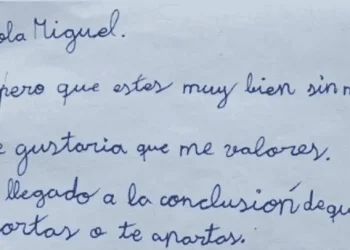 ola Miguel.
pero que estes muy bien sin m
e gustaria que me valores.
llegado a la conclusión de que
ortas o te apartas.